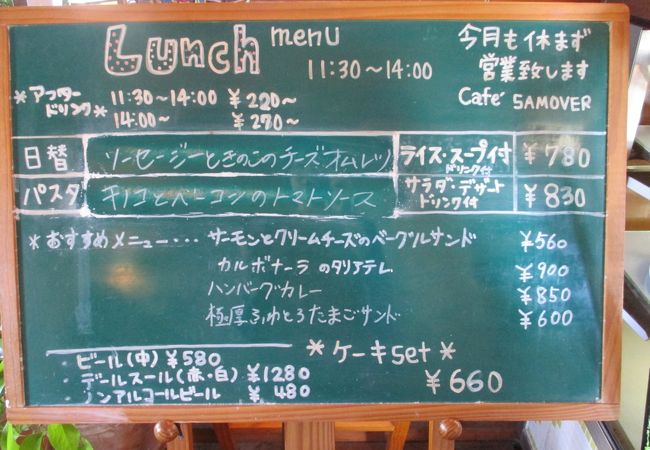 Lunch menu
11:30〜14:00
今月も休まず
営業致します
Café SAMOVER
*アフタードリンク* 11:30〜14:00 ¥220〜
14:00〜 ¥270〜
日替 ソーセージときのこのチーズオムレツ ライス・スープ付 ドリンク付 ¥780
パスタ キノコとベーコンのトマトソース サラダ・デザート ドリンク付 ¥830
*おすすめメニュー・・・ サーモンとクリームチーズのベーグルサンド ¥560
カルボナーラのタリアテレ ¥900
ハンバーグカレー ¥850
極厚ふわとろたまごサンド ¥600
ビール(中) ¥580
デールスール(赤・白) ¥1280
ノンアルコールビール ¥480
*ケーキset*
¥660